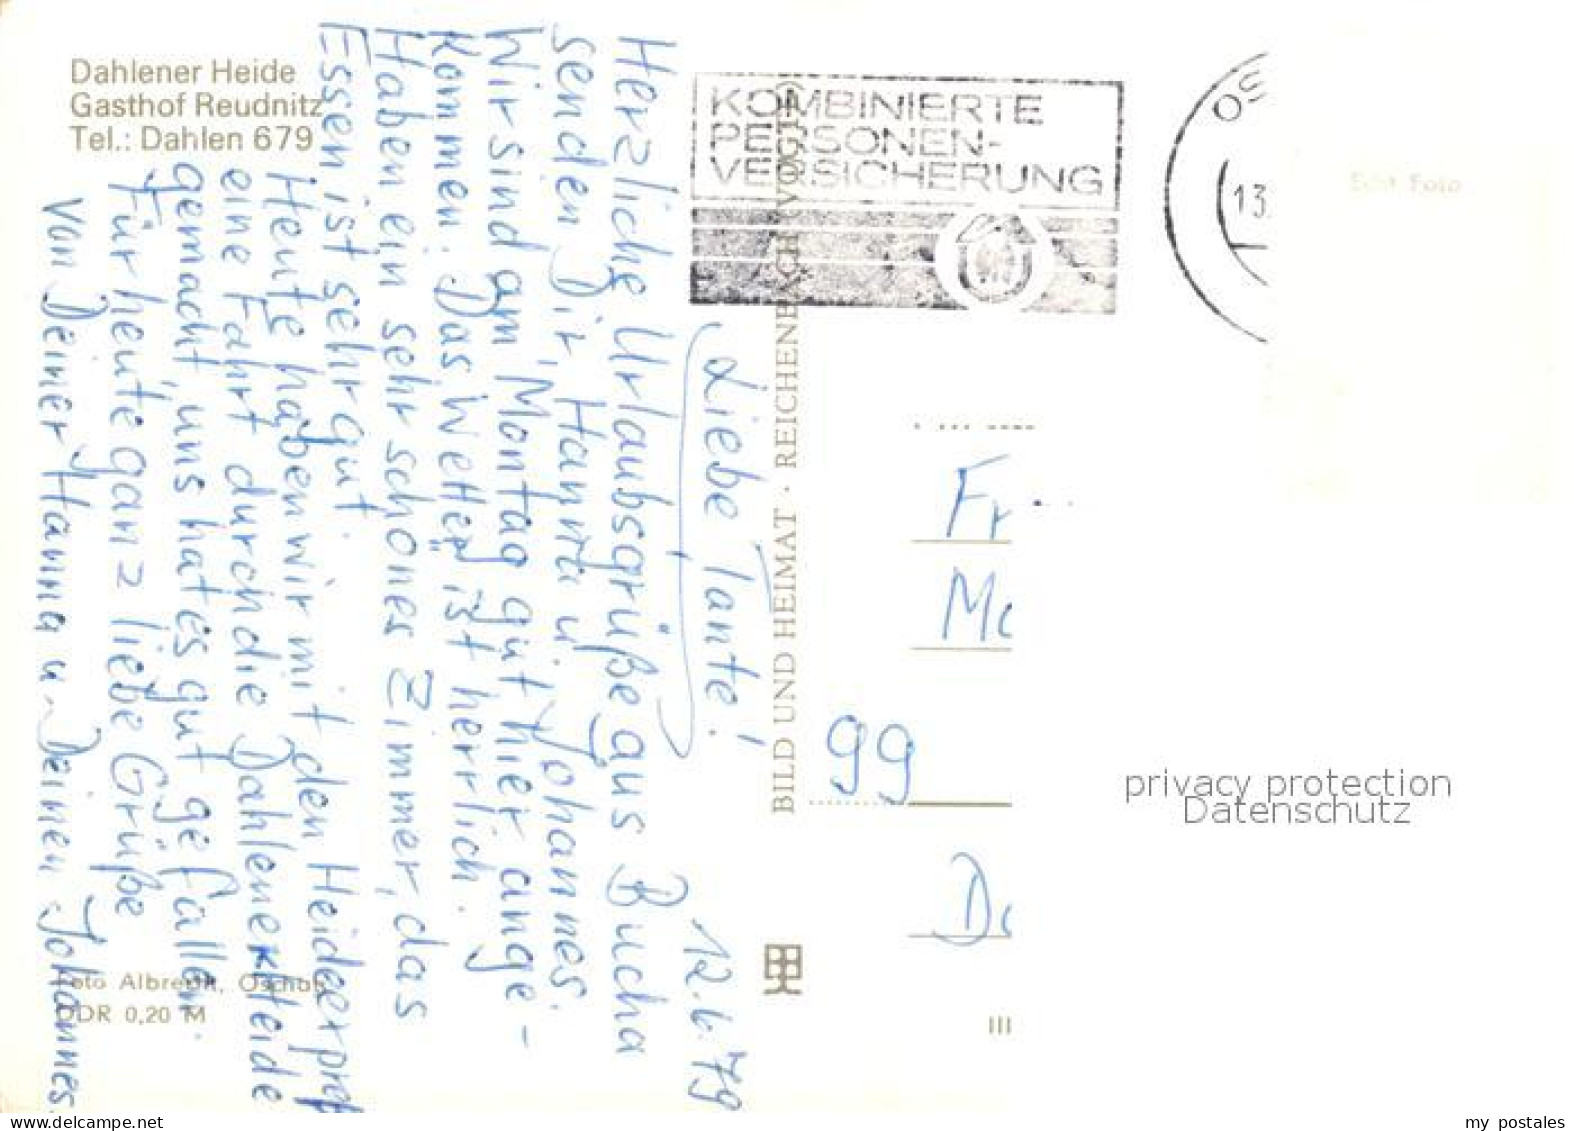 Dahlener Heide
Gasthof Reudnitz
Tel.: Dahlen 679
KOMBINIERTE
PERSONEN-
VERSICHERUNG
OS
13.
Echt Foto
12.6.79
Liebe Tante!
Herzliche Urlaubsgrüße aus Bucha
senden Dir, Hanna u. Johannes.
Wir sind am Montag gut hier ange-
kommen. Das Wetter ist herrlich.
Haben ein sehr schönes Zimmer, das
Essen ist sehr gut.
Heute haben wir mit den Heideexpreß
eine Fahrt durch die Dahlener Heide
gemacht, uns hat es gut gefallen.
Für heute ganz liebe Grüße
von Deiner Hanna u. Deinen Johannes.
BILD UND HEIMAT · REICHENBACH (VOGTL)
Fr
Mo
99
Do
Foto Albrecht, Oschatz
DDR 0,20 M
III
privacy protection
Datenschutz
www.delcampe.net
my_postales